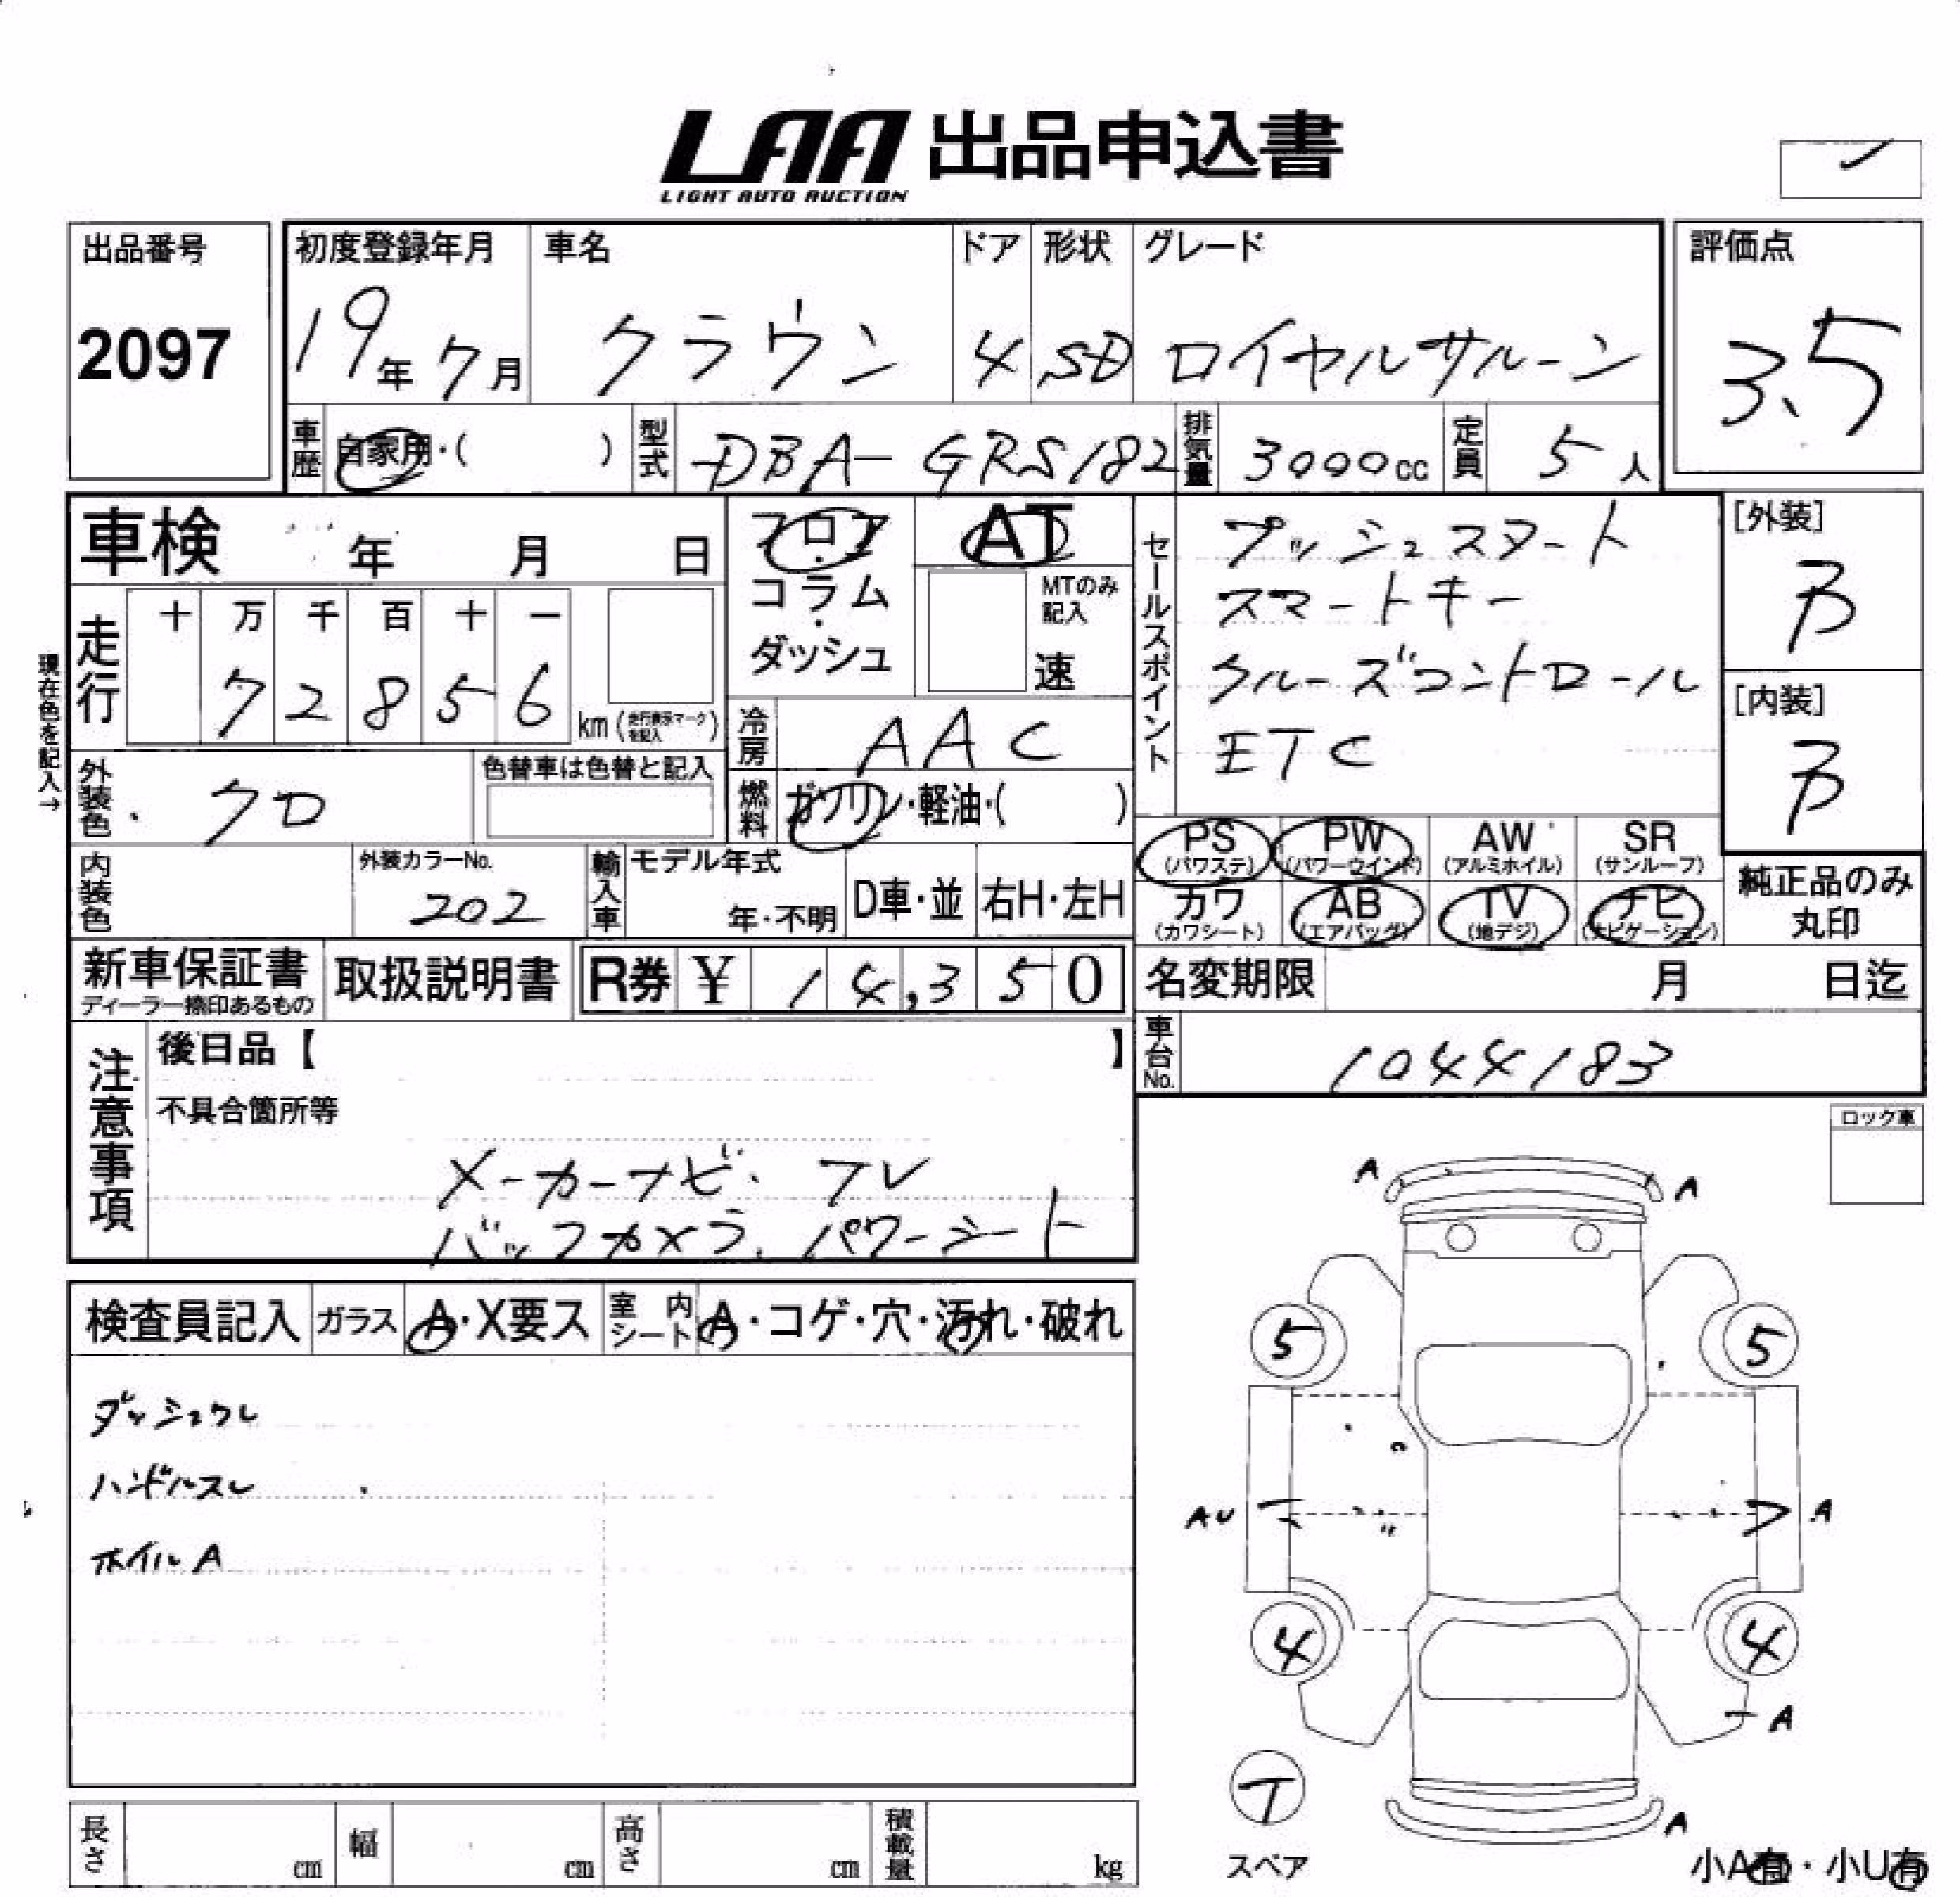 LAA 出品申込書
LIGHT AUTO AUCTION
出品番号
2097
初度登録年月
19年7月
車名
クラウン
ドア
4
形状
SD
グレード
ロイヤルサルーン
評価点
3.5
車歴
自家用・( )
型式
DBA-GRS182
排気量
3000cc
定員
5人
車検 年 月 日
フロア・コラム・ダッシュ
AT
MTのみ記入
速
セールスポイント
プッシュスタート
スマートキー
クルーズコントロール
ETC
[外装]
B
[内装]
B
現在色を記入→
走行
十 万 千 百 十 一
7 2 8 5 6
km (走行表示マークを記入)
冷房
AAC
外装色
クロ
色替車は色替と記入
燃料
ガソリン・軽油・( )
PS (パワステ)
PW (パワーウインド)
AW (アルミホイル)
SR (サンルーフ)
カワ (カワシート)
AB (エアバッグ)
TV (地デジ)
ナビ (ナビゲーション)
純正品のみ
丸印
内装色
外装カラーNo.
202
輸入車
モデル年式
年・不明
D車・並
右H・左H
新車保証書
ディーラー捺印あるもの
取扱説明書
R券 ¥ 14,350
名変期限 月 日迄
車台No.
1044183
注意事項
後日品【 】
不具合箇所等
メーカーナビ. フレ
バックカメラ. パワーシート
ロック車
検査員記入
ガラス
A・X要ス
室内シート
A・コゲ・穴・汚れ・破れ
ダッシュウレ
ハンドルスレ
ホイルA
A A
5 5
AU A
4 4
A
T
スペア
A
小A有・小U有
長さ cm
幅 cm
高さ cm
積載量 kg